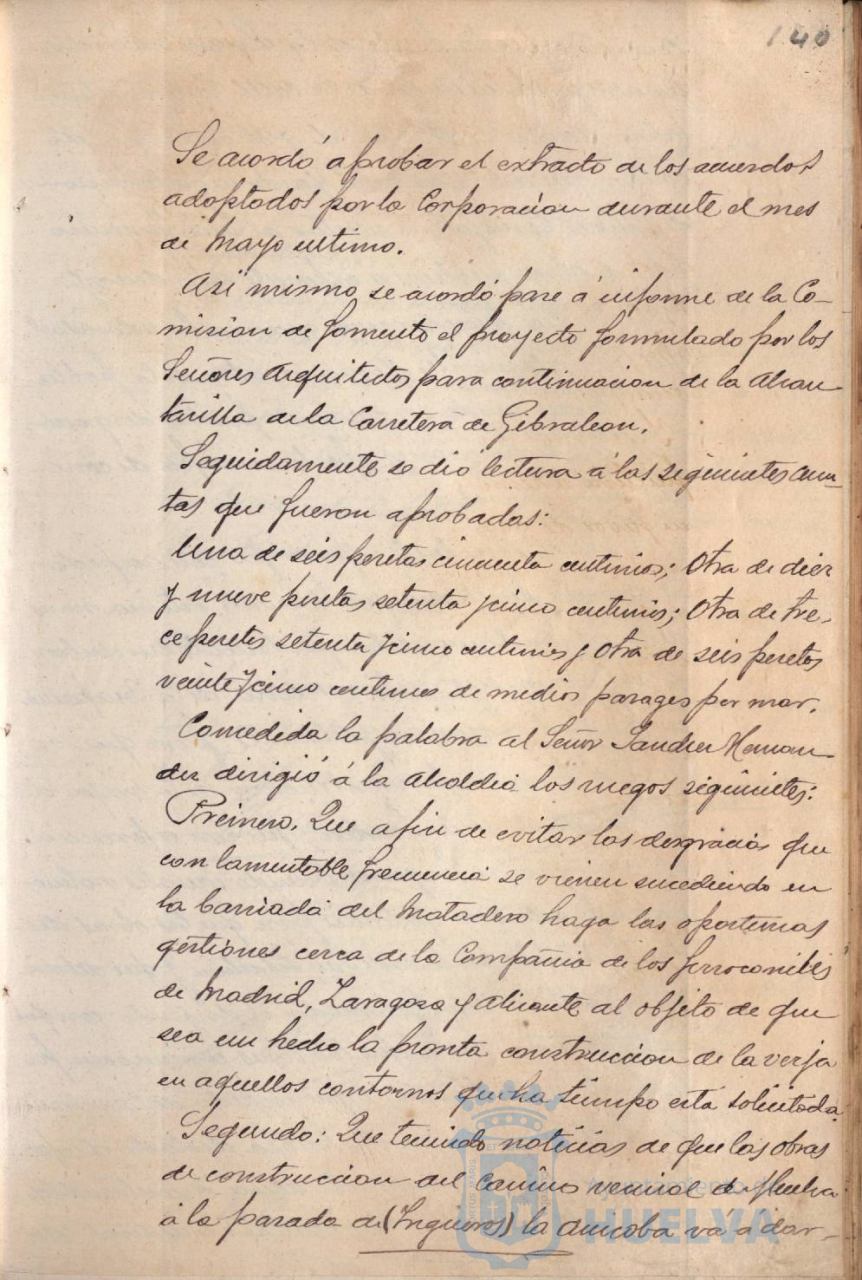 140
Se acordó aprobar el extracto de los acuerdos
adoptados por la Corporacion durante el mes
de Mayo ultimo.
Asi mismo se acordó pase á informe de la Co-
mision de fomento el proyecto formulado por los
Señores Arquitectos para continuacion de la Alcan-
tarilla de la Carretera de Gibraleon.
Seguidamente se dio lectura á las siguientes cuen-
tas que fueron aprobadas:
Una de seis pesetas cincuenta centimos; Otra de diez
y nueve pesetas setenta y cinco centimos; Otra de tre-
ce pesetas setenta y cinco centimos y Otra de seis pesetas
veinte y cinco centimos de medios pasages por mar.
Concedida la palabra al Señor Sanchez Hernan-
dez dirigió á la Alcaldia los ruegos siguientes:
Primero. Que a fin de evitar las desgracias que
con lamentable frecuencia se vienen sucediendo en
la barriada del Matadero haga las oportunas
gestiones cerca de la Compañia de los ferrocarriles
de Madrid, Zaragoza y Alicante al objeto de que
sea un hecho la pronta construccion de la verja
en aquellos contornos que ha tiempo está solicitada.
Segundo: Que teniendo noticias de que las obras
de construccion del camino vecinal de Huelva
á la parada de (Ingueros) la Anicoba va a dar-
HUELVA